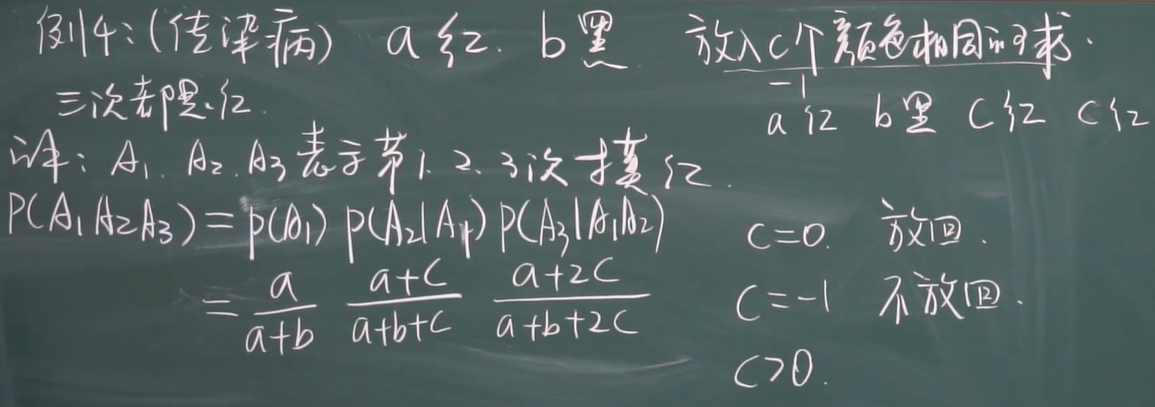 例4:(传染病) a红. b黑 放入c个颜色相同的球.
-1
三次都是红.
a红 b黑 c红 c红
解: A₁. A₂. A₃表示第1. 2. 3次摸红.
P(A₁A₂A₃) = P(A₁) P(A₂|A₁) P(A₃|A₁A₂)
= \frac{a}{a+b} \frac{a+c}{a+b+c} \frac{a+2c}{a+b+2c}
c=0. 放回.
c=-1 不放回.
c>0.